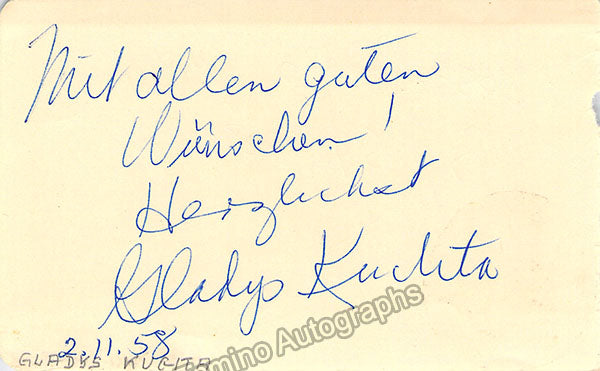 Mit allen guten
Wünschen!
Herzlichst
Gladys Kuchta
2.11.58
GLADYS KUCHTA
mino Autographs